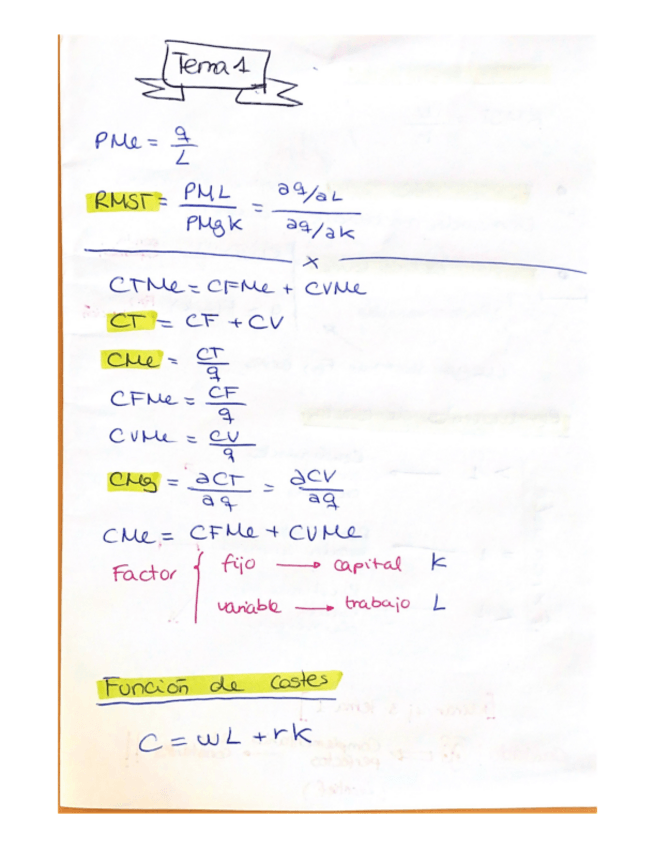 Tema 1
PMe = q/L
RMST = PML/PMgK = ∂q/∂L / ∂q/∂K
x
CTMe = CFMe + CVMe
CT = CF + CV
CMe = CT/q
CFMe = CF/q
CVMe = CV/q
CMg = ∂CT/∂q = ∂CV/∂q
CMe = CFMe + CVMe
Factor { fijo → capital K
variable → trabajo L
Función de costes
C = wL + rK